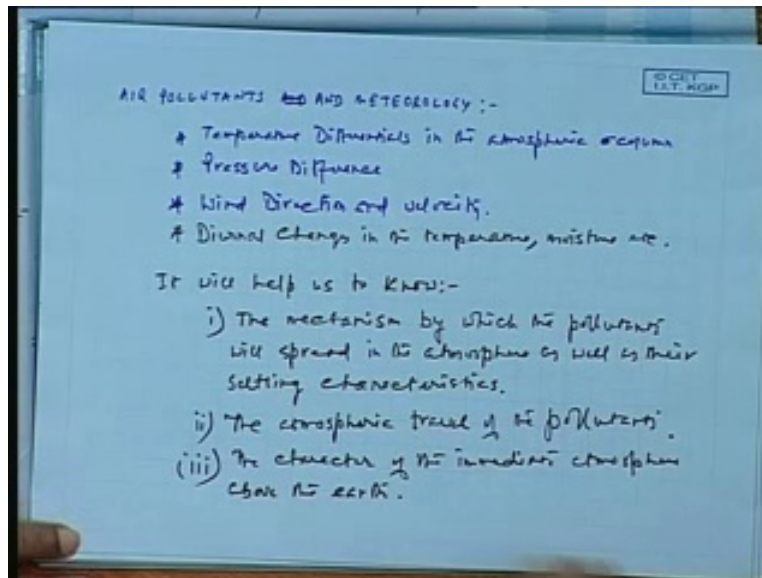 © CET
I.I.T. KGP
AIR POLLUTANTS AND METEOROLOGY :-
* Temperature Differentials in the atmospheric column
* Pressure Difference
* Wind Direction and velocity.
* Diurnal Change in the temperature, moisture etc.
It will help us to know:-
i) The mechanism by which the pollutants
will spread in the atmosphere as well as their
settling characteristics.
ii) The atmospheric travel of the pollutants.
(iii) The character of the immediate atmosphere
above the earth.